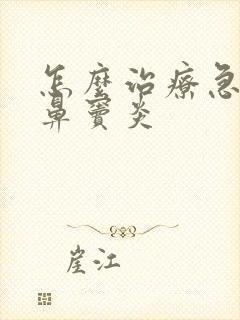 怎麼治療急
鼻竇炎
崖江